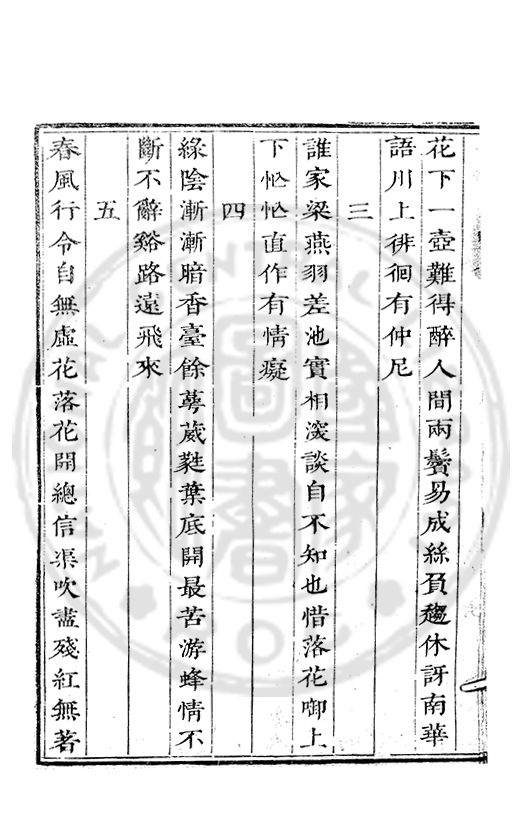 花下一壺難得醉人間兩鬢易成絲負趨休訝南華
語川上徘徊有仲尼
三
誰家梁燕羽差池實相深談自不知也惜落花啣上
下忙忙直作有情癡
四
綠陰漸漸暗香臺餘萼葳蕤葉底開最苦游蜂情不
斷不辭谿路遠飛來
五
春風行令自無虛花落花開總信渠吹盡殘紅無著